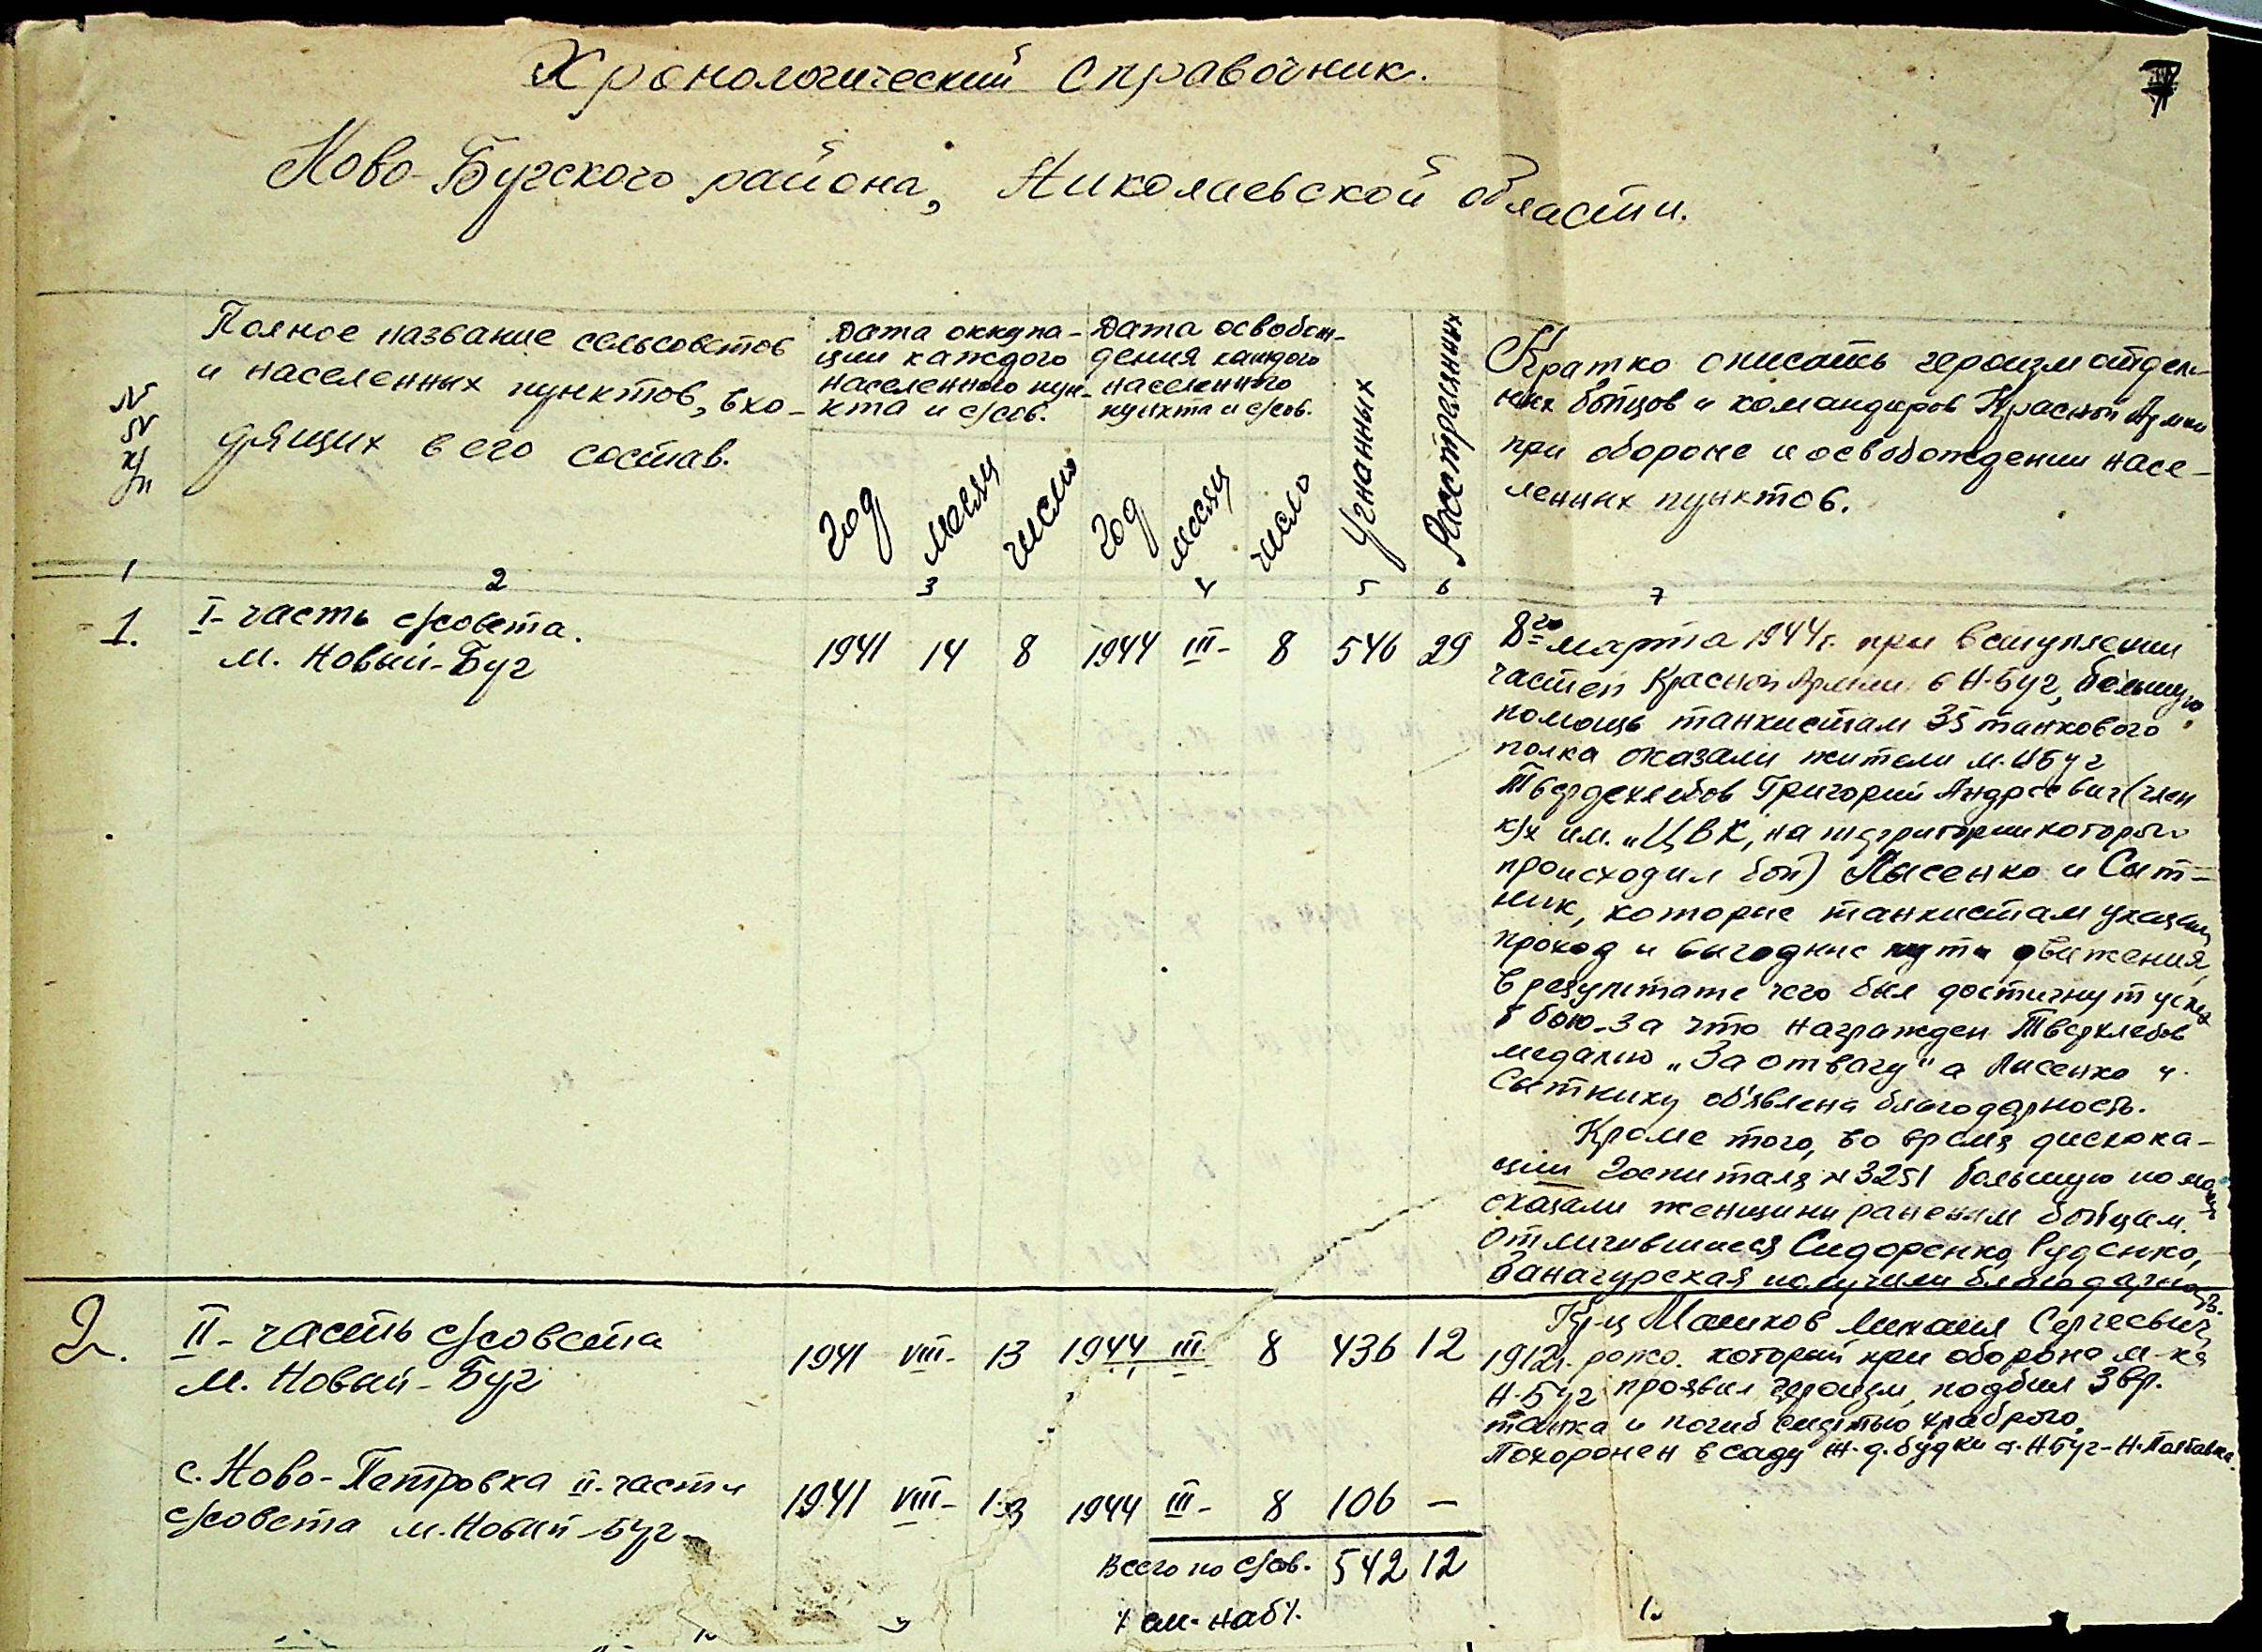 Хронологический справочник.
Ново-Бугского района, Николаевской области.
№№ п/п
Полное название сельсоветов
и населенных пунктов, вхо-
дящих в его состав.
Дата оккупа-
ции каждого
населенного пун-
кта и с/сов.
Дата освобож-
дения каждого
населенного
пункта и с/сов.
год месяц число год месяц число
Угнанных
Расстрелянных
Кратко описать героизм отдель-
ных бойцов и командиров Красной Армии
при обороне и освобождении насе-
ленных пунктов.
1 2 3 4 5 6 7
1. I-часть с/совета.
м. Новый-Буг
1941 14 8 1944 III- 8 546 29
8го марта 1944г. при вступлении
частей Красной Армии в Н-Буг, большую
помощь танкистам 35 танкового
полка оказали жители м. НБуг
Твердохлебов Григорий Андреевич (член
к/х им. „ЦВК, на территории которого
происходил бой) Лысенко и Сыт-
ник, которые танкистам указали
проход и выгодные пути движения,
в результате чего был достигнут успех
в бою. За что награжден Твердхлебов
медалью „За отвагу" а Лисенко и
Сытнику об'явлена благодарность.
Кроме того, во время дислока-
ции госпиталя № 3251 большую помощь
оказали женщины раненым бойцам.
Отличившиеся Сидоренко, Руденко,
Занагурская получили благодарность.
2. II-часть с/совета
м. Новый-Буг
1941 VIII- 13 1944 III- 8 436 12
Кр-ц Машков Михаил Сергеевич,
1912г. рожд. который при обороне м-ка
Н-Буг проявил героизм, подбил 3 вр.
танка и погиб смертью храброго.
Похоронен в саду ж.д. будки ст. НБуг-Н.Полтавка.
с. Ново-Петровка II-части
с/совета м. Новый-Буг
1941 VIII- 13 1944 III- 8 106 —
Всего по с/сов. 542 12